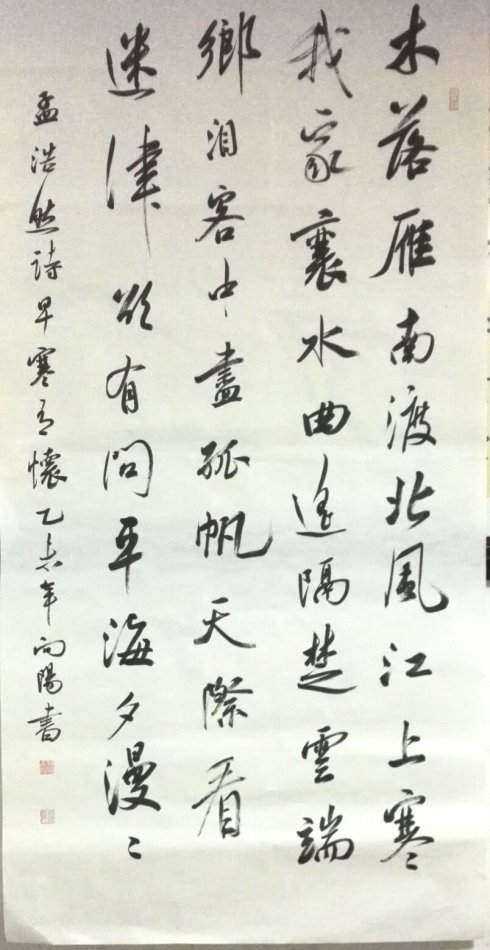 木落雁南渡北風江上寒
我家襄水曲遙隔楚雲端
鄉淚客中盡孤帆天際看
迷津欲有問平海夕漫〻
孟浩然詩早寒有懷乙未年向陽書